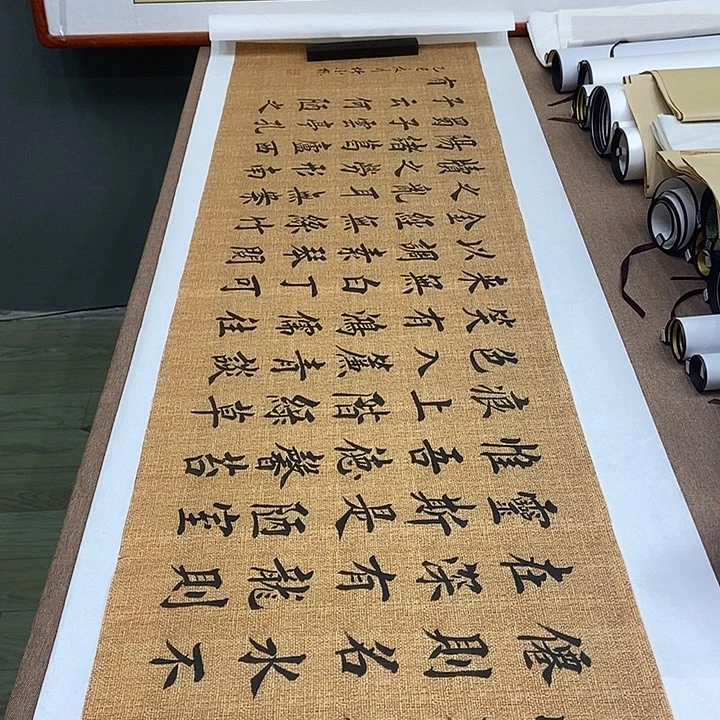 僊則名水不
在深有龍則
靈斯是陋室
惟吾德馨苔
痕上階綠草
色入簾青談
笑有鴻儒往
来無白丁可
以調素琴閱
金經無絲竹
之亂耳無案
牘之勞形南
陽諸葛廬西
蜀子雲亭孔
子云何陋之
有